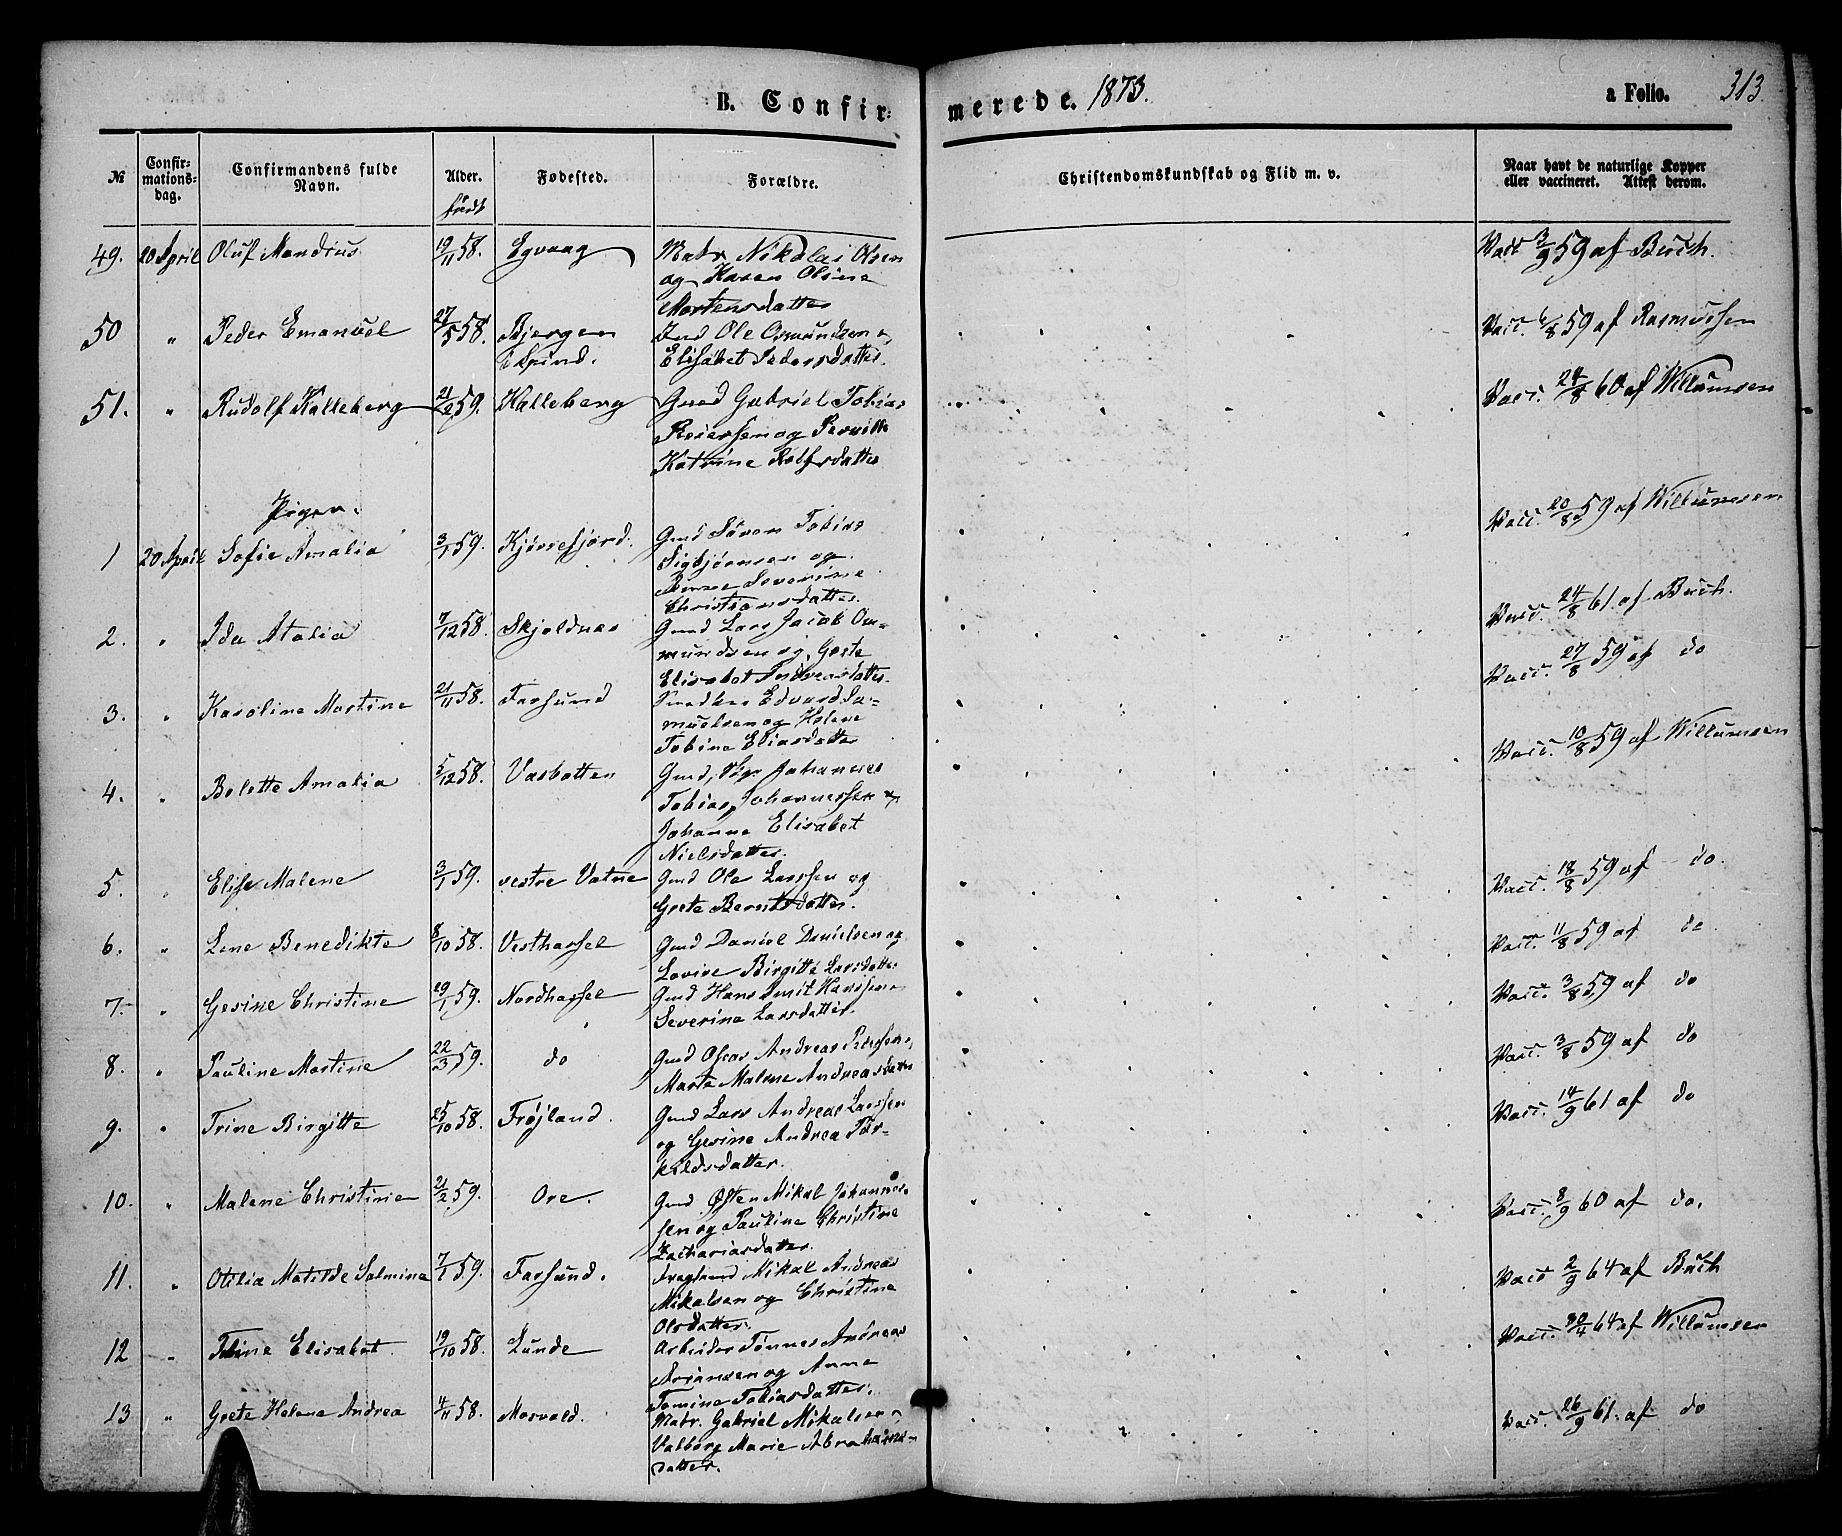 B. Confir-
merede. 1873.
a Folio. 313
№
Confir-
mations-
dag.
Confirmandens fulde
Navn.
Alder.
født
Fødested.
Forældre.
Christendomskundskab og Flid m. v.
Naar havt de naturlige Kopper
eller vaccineret. Attest derom.
49. 20 April Oluf Mandius 19/11 58. Egvaag Matr Nikolai Olsen
og Karen Olsine
Mortensdatter
Vacc 3/9 59 af Buch.
50 " Peder Emanuel 27/5 58. Bjergen
i Spind.
Ind Ole Osmundsen
Elisabet Pedersdatter
Vacc. 6/8 59 af Rasmussen
51. " Rudolf Kalleberg 21/2 59. Kalleberg Gmd Gabriel Tobias
Reiersen og Pernille
Katrine Rolfsdatter
Vacc. 24/8 60 af Willumsen
Piger.
1 20 April Sofie Amalia 3/1 59. Kjørrefjord. Gmd Søren Tobias
Sigbjørnsen og
Anne Severine
Christiansdatter.
Vacc. 20/8 59 af Willumsen
2. " Ida Atalia 7/12 58. Skjoldnes Gmd Lars Jacob Om-
mundsen og Grete
Elisabet Andreasdatter.
Vacc. 24/8 61 af Buch.
3. " Karoline Martine 21/11 58. Farsund Snedker Edvard Sa-
muelsen og Helene
Tobine Eliasdatter
Vacc. 27/8 59 af do
4. " Bolette Amalia 5/12 58. Vasbotten Gmd, Johannes
Tobias Johannessen
Johanne Elisabet
Nielsdatter.
Vacc. 10/8 59 af Willumsen
5. " Elise Malene 3/1 59. vestre Vatne Gmd Ole Larssen og
Grete Berntsdatter.
Vacc. 18/8 59 af do.
6. " Lene Benedikte 8/10 58. Vesthassel Gmd Daniel Danielsen og
Lovise Birgitte Larsdatter
Vacc. 11/8 59 af do
7. " Gesine Christine 29/1 59. Nordhassel Gmd Hans Smit Hanssen
Severine Larsdatter.
Vacc. 3/8 59 af do
8. " Pauline Martine 22/3 59. do Gmd Andreas Pedersen
Marte Malene Andreasdatter
Vacc. 3/8 59 af do
9. " Trine Birgitte 25/10 58. Frøjland. Gmd Lars Andreas Larssen
og Gesine Andrea Tor-
kildsdatter.
Vacc. 14/9 61 af do
10. " Malene Christine 21/2 59. Ore. Gmd Østen Mikal Johannes-
sen og Pauline Christine
Zachariasdatter.
Vacc. 8/9 60 af do.
11. " Otilia Matilde Salmina 7/1 59. Farsund. Mikal Andreas
Mikalsen og Christine
Olsdatter.
Vacc 2/9 64 af Buch
12 " Tobine Elisabet. 19/10 58. Lunde Arbeider Tønnes Andreas
Ariansen og Anne
Tomine Tobiasdatter.
Vacc. 30/4 64 af Willumsen
13 " Grete Helene Andrea 4/11 58. Mosvald. Matr. Gabriel Mikalsen
Valborg Marie Abrahams-
datter.
Vacc. 26/9 61. af do